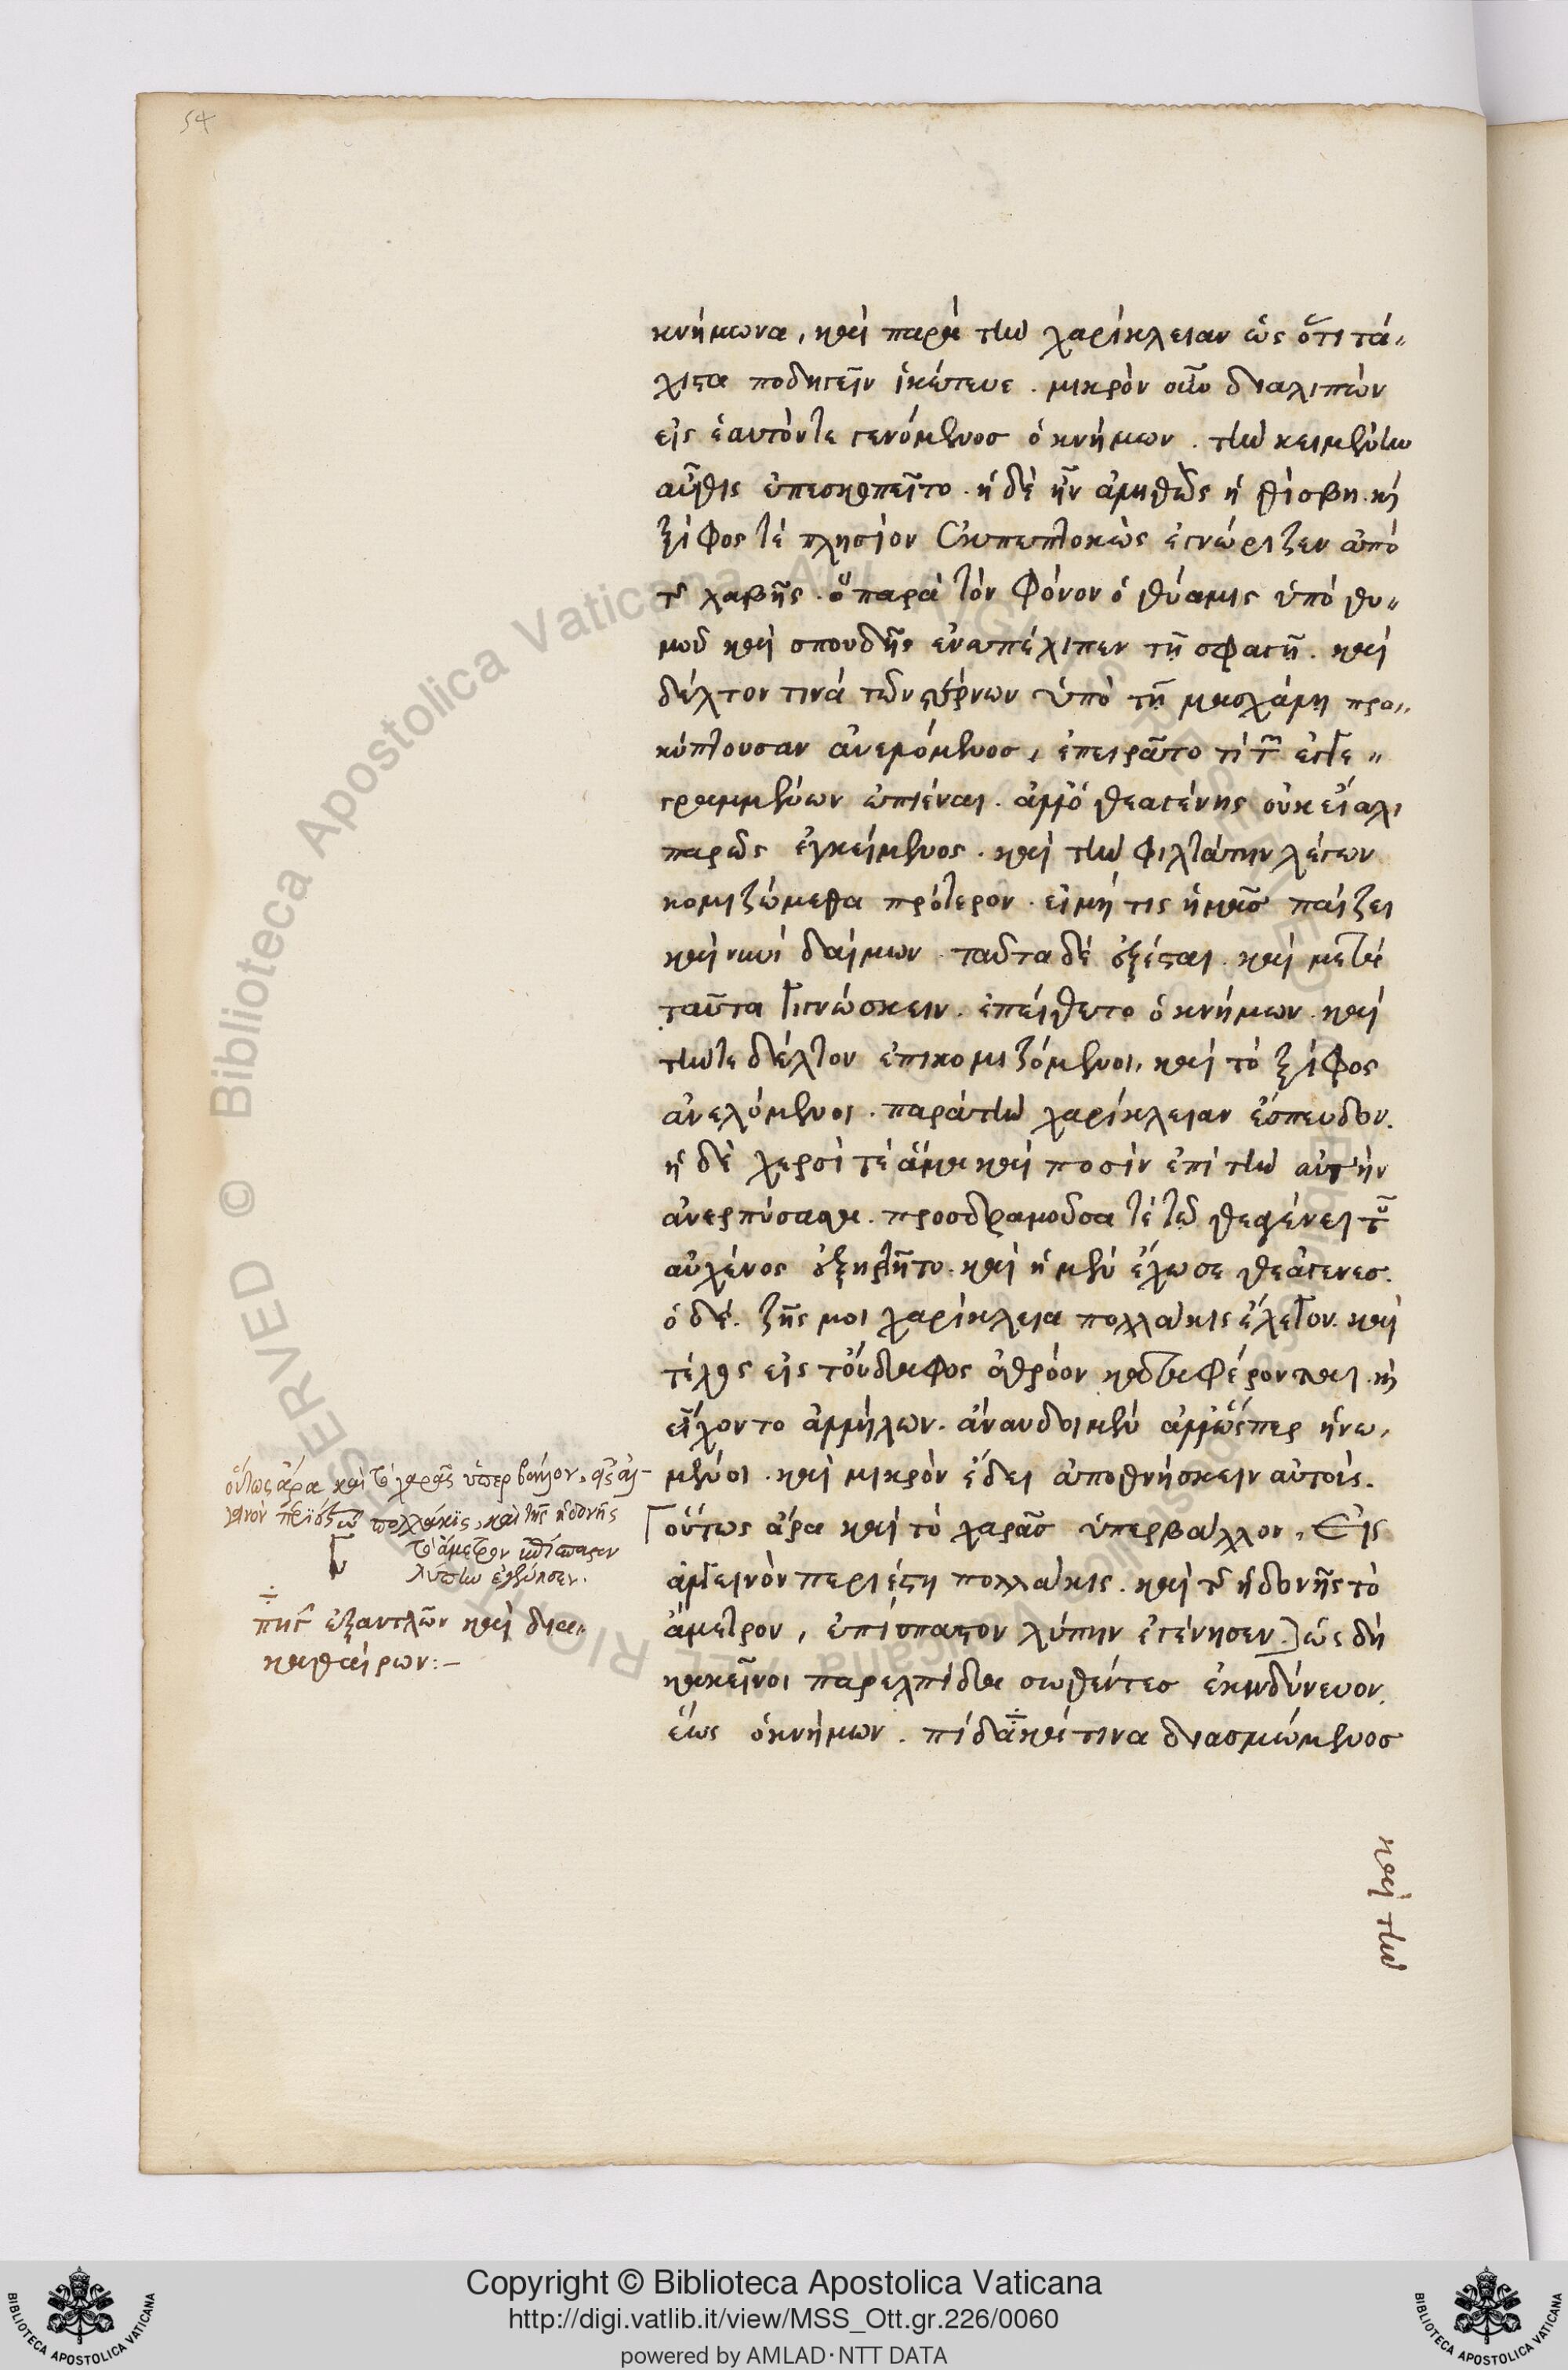 54
κνήμωνα, καὶ παρὰ τὴν χαρίκλειαν ὡς ὅτι τά„
χιστα ποδηγεῖν ἱκέτευε. μικρὸν οὖν διαλιπὼν
εἰς ἑαυτόν τε γενόμενος ὁ κνήμων. τὴν κειμένην
αὖθις ἐπεσκοπεῖτο. ἡ δὲ ἦν ἀληθῶς ἡ θίσβη. καὶ
ξίφος τὲ πλησίον ἐκπεπτοκὼς ἐγνώριζεν ἀπὸ
τῆς λαβῆς. ὃ παρὰ τὸν φόνον ὁ θύαμις ὑπὸ θυ„
μοῦ καὶ σπουδῆς ἐναπέλιπεν τῇ σφαγῇ. καὶ
δέλτον τινὰ τῶν στέρνων ὑπὸ τῇ μασχάλῃ προ„
κύπτουσαν ἀνελόμενος, ἐπειρᾶτο τί τῶν ἐγγε„
γραμμένων ἐπιέναι. ἀλλ' ὁ θεαγένης οὐκ εἴα λι
παρῶς ἐγκείμενος. καὶ τὴν φιλτάτην λέγων
κομιζώμεθα πρότερον. εἰ μή τις ἡμᾶς παίζει
καὶ νυνὶ δαίμων. ταῦτα δὲ ἐξέσται. καὶ μετὰ
ταῦτα γιγνώσκειν. ἐπείθετο ὁ κνήμων. καὶ
τήν τε δέλτον ἐπικομιζόμενοι, καὶ τὸ ξίφος
ἀνελόμενοι. παρὰ τὴν χαρίκλειαν ἔσπευδον.
ἡ δὲ χερσί τε ἅμα καὶ ποσὶν ἐπὶ τὴν αὐγὴν
ἀνερπύσασα. προσδραμοῦσα τὲ τῷ θεαγένει τοῦ
αὐχένος ἐξήρτητο. καὶ ἡ μὲν ἔχω σε θεάγενες.
ὁ δὲ. ζῇς μοι χαρίκλεια πολλάκις ἔλεγον. καὶ
τέλος εἰς τοὔδαφος ἀθρόον καταφέρονται. καὶ
εἴχοντο ἀλλήλων. ἄναυδοι μὲν ἀλλ' ὥσπερ ἡνω,
μένοι. καὶ μικρὸν ἔδει ἀποθνήσκειν αὐτοὺς.
οὕτως ἄρα καὶ τὸ χαρᾶς ὑπερβάλλον, εἰς
ἀλγεινὸν περιέστη πολλάκις. καὶ τῆς ἡδονῆς τὸ
ἄμετρον, ἐπίσπαστον λύπην ἐγέννησεν.] ὡς δὴ
κἀκεῖνοι παρ' ἐλπίδα σωθέντες ἐκινδύνευον.
ἕως ὁ κνήμων. πίδακά τινα διασμώμενος
οὕτως ἄρα καὶ τὸ χαρᾶς ὑπερβάλλον, εἰς ἀλ-
γεινὸν περιέστη πολλάκις, καὶ τῆς ἡδονῆς
τὸ ἄμετρον ἐπίσπαστον
λύπην ἐγέννησεν.
πηγὴν ἐξαντλῶν καὶ δια„
καθαίρων:–
καὶ τὴν
Copyright © Biblioteca Apostolica Vaticana
http://digi.vatlib.it/view/MSS_Ott.gr.226/0060
powered by AMLAD·NTT DATA